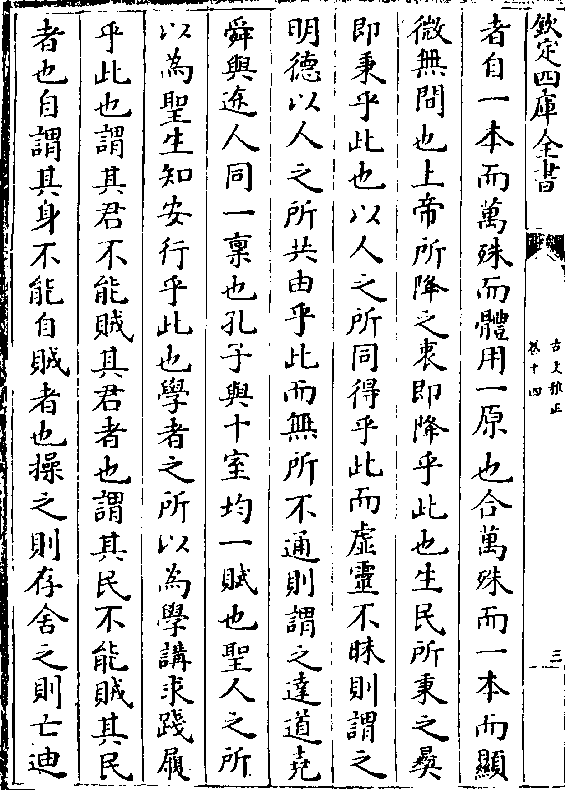 欽定四庫全書
古文雅正
卷十四
三
者自一本而萬殊而體用一原也合萬殊而一本而顯
微無間也上帝所降之衷即降乎此也生民所秉之彝
即秉乎此也以人之所同得乎此而虛靈不昧則謂之
明德以人之所共由乎此而無所不通則謂之達道堯
舜與途人同一稟也孔子與十室均一賦也聖人之所
以為聖生知安行乎此也學者之所以為學講求踐履
乎此也謂其君不能賊其君者也謂其民不能賊其民
者也自謂其身不能自賊者也操之則存舍之則亡迪